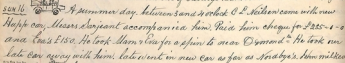 SUN 16 A summer day. between 3 and 4 o'clock C L Neilson came with new
Hupp car, Messrs Sarjeant accompanied him. Paid him cheque for £225-0-0
and Exs £150. He took Mam & Eva for a spin to near Ormond . He took our
late car away with him, later went in new car as far as